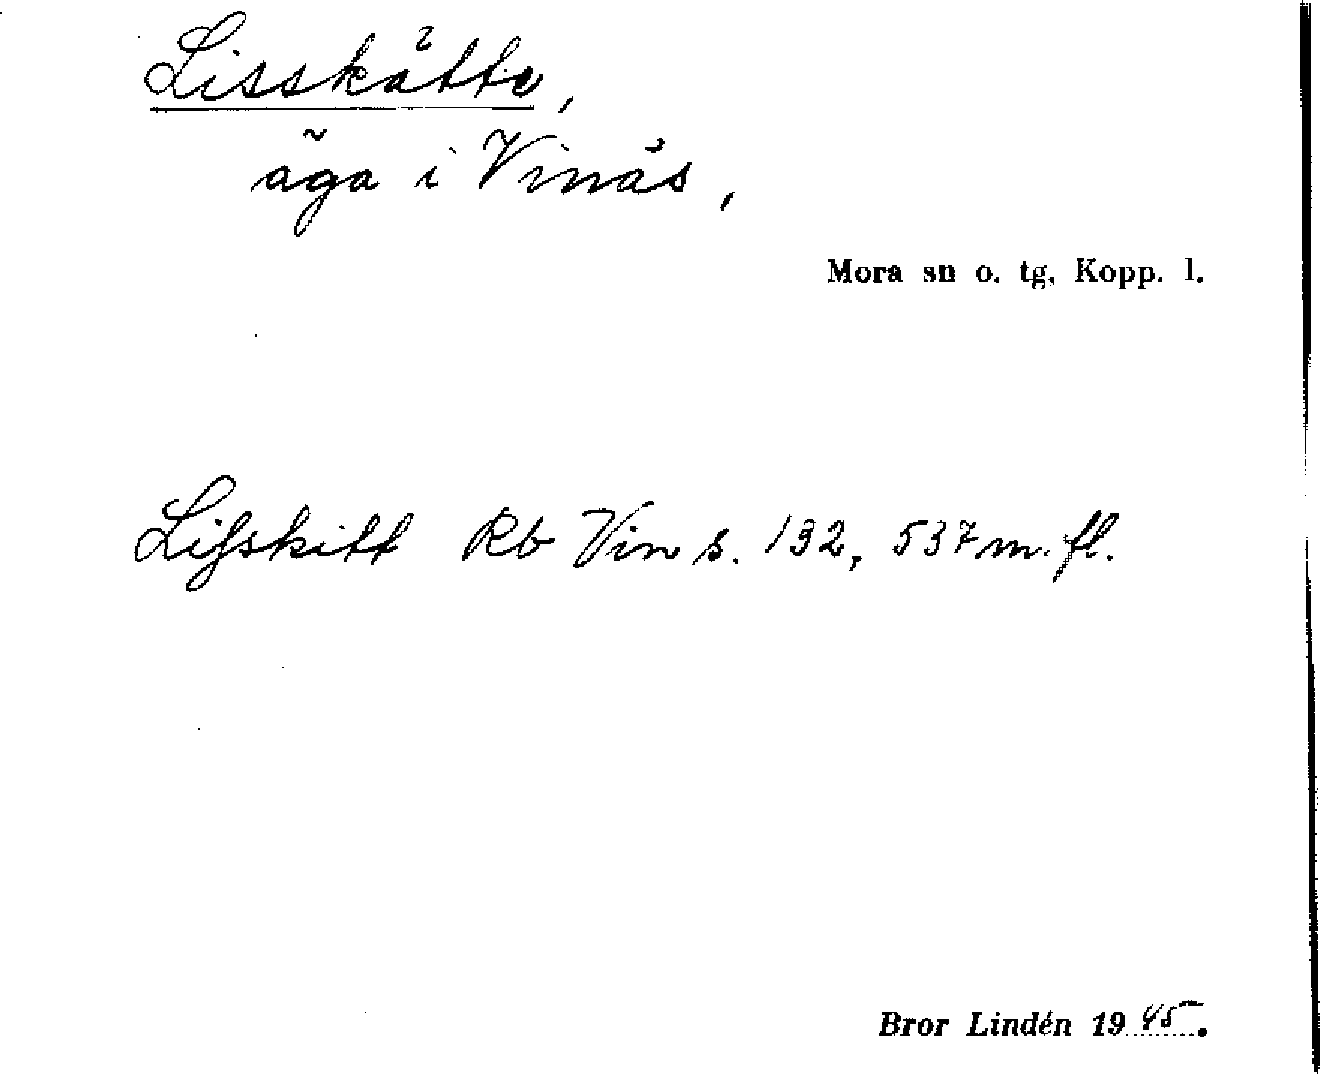 Lisskätte,
äga i Vinäs,
Mora sn o. tg, Kopp. l.
Liſskitt Rb Vin s. 132, 537 m. fl.
Bror Lindén 1945.